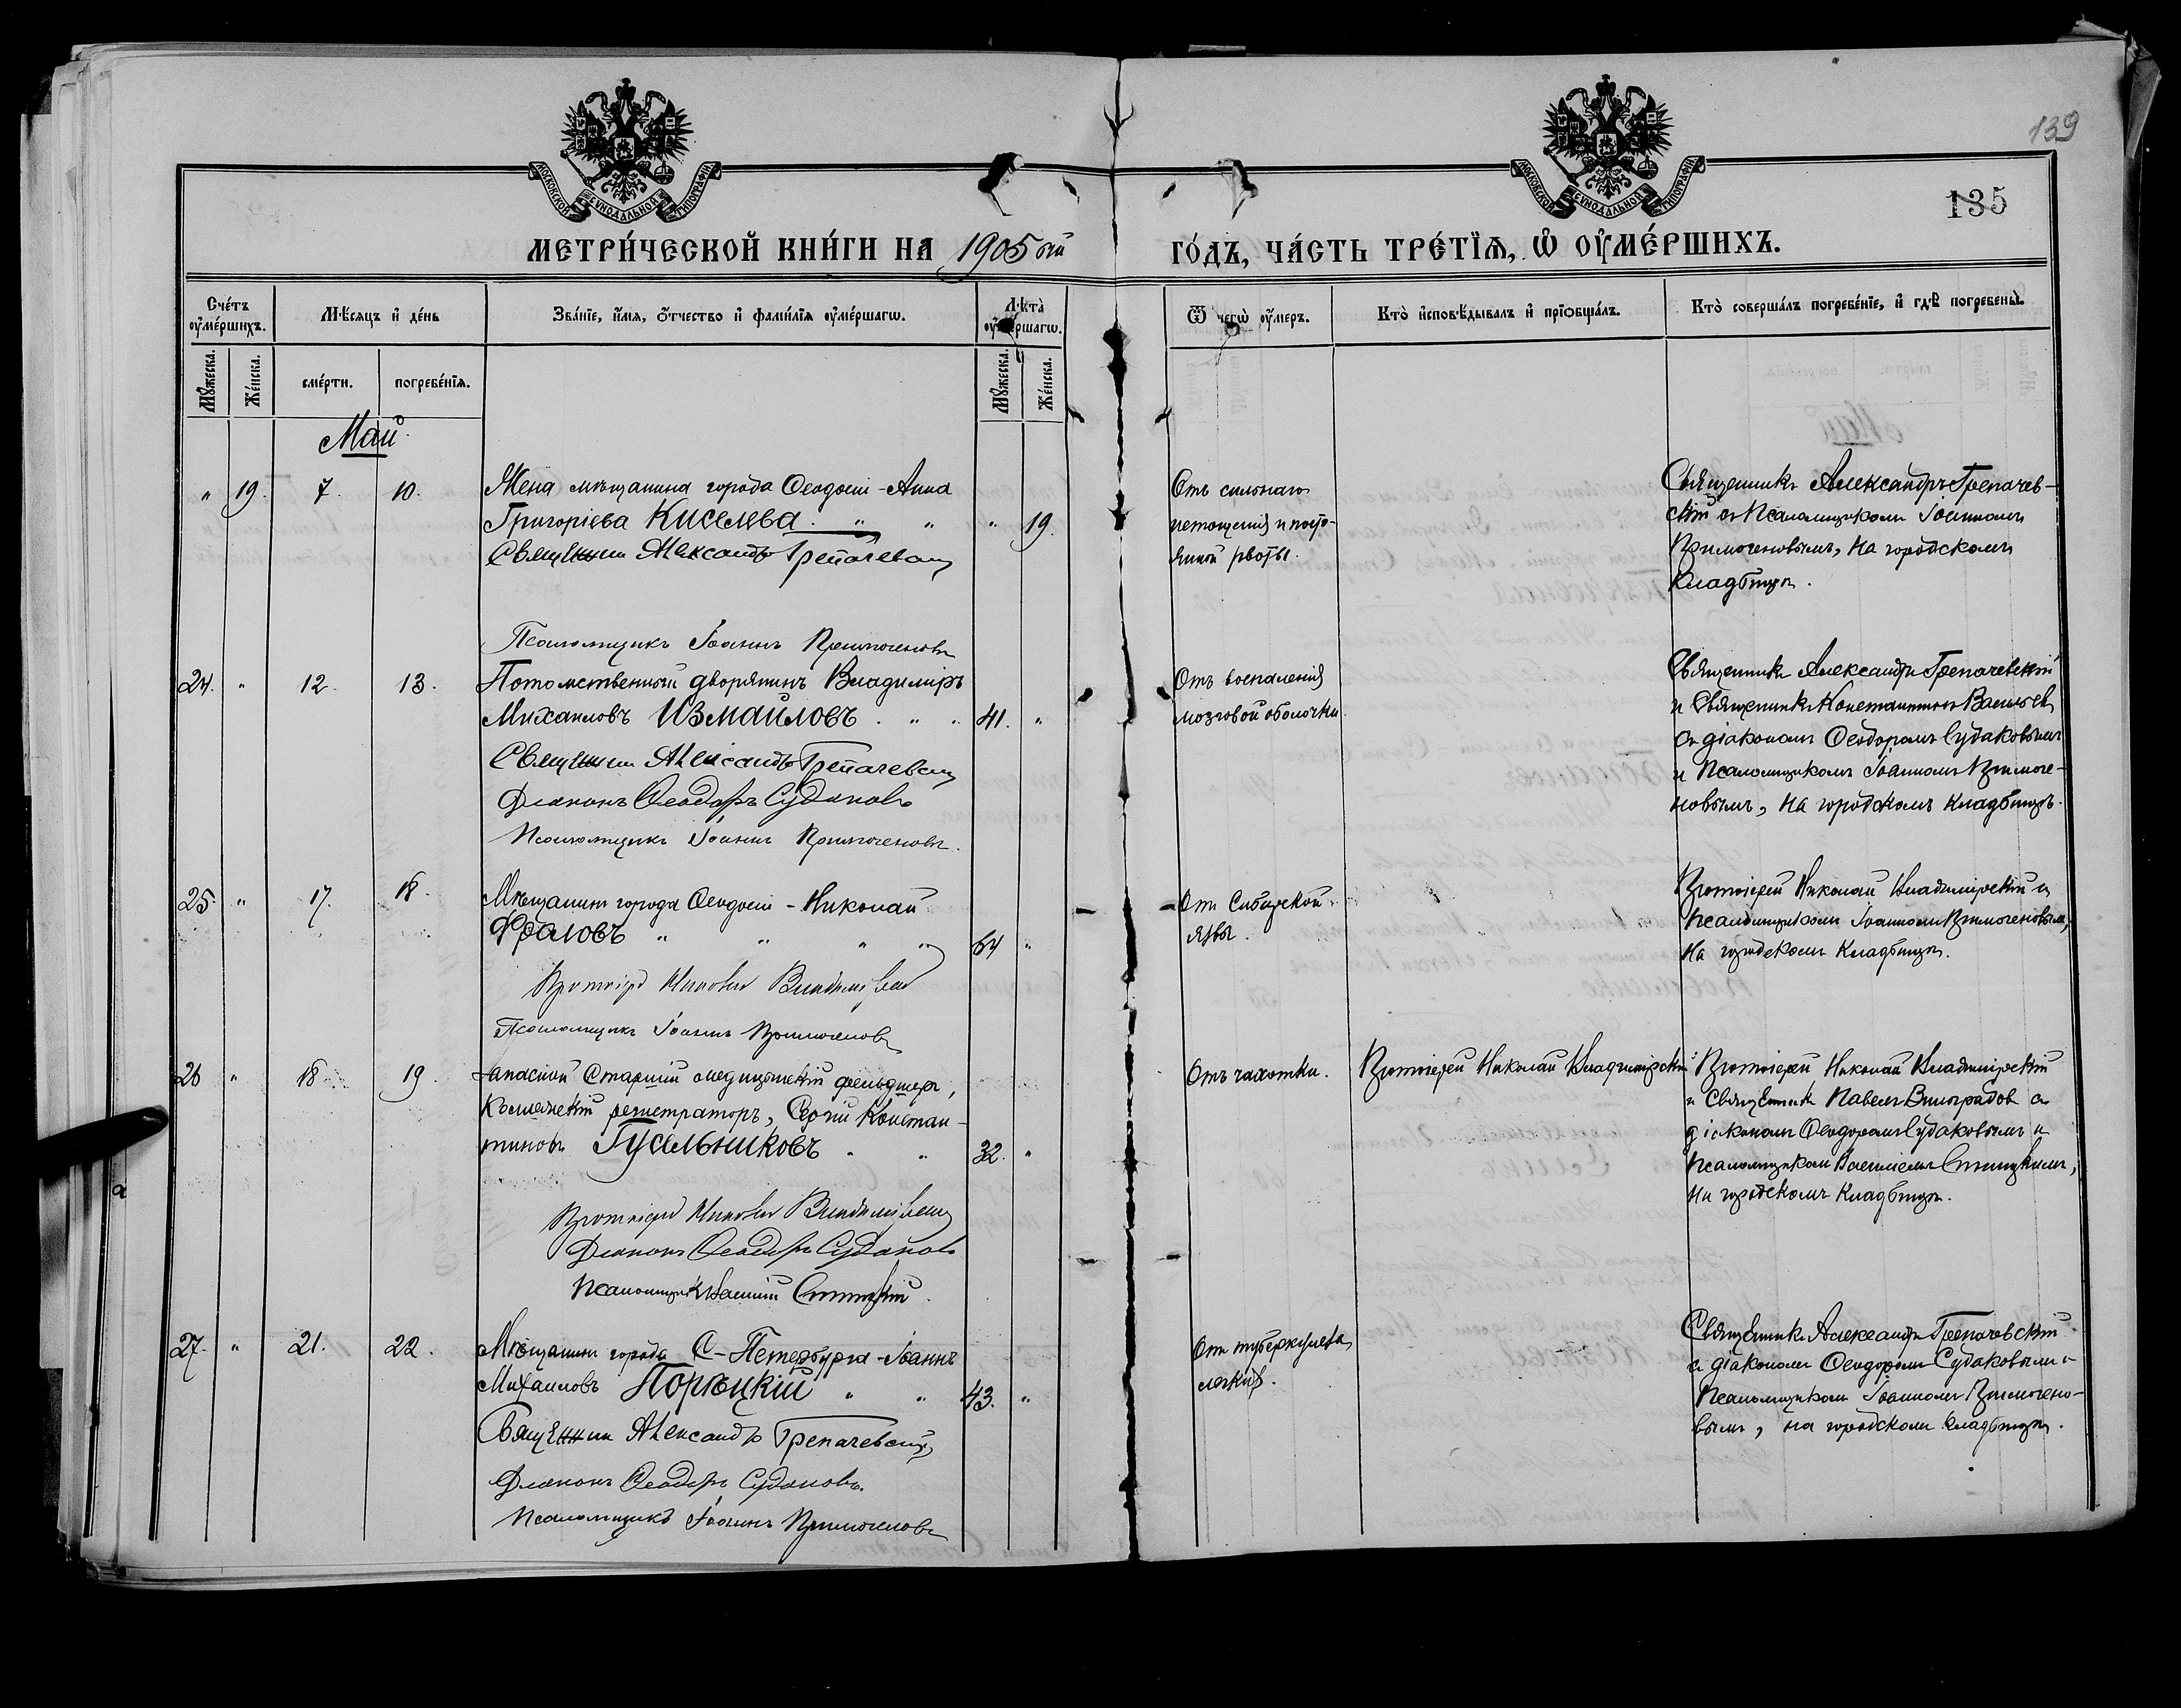 139
135
МОСКОВСКОЙ СѴНОДАЛЬНОЙ ТИПОГРАФІИ
МОСКОВСКОЙ СѴНОДАЛЬНОЙ ТИПОГРАФІИ
МЕТРИ́ЧЕСКОЙ КНИ́ГИ НА 1905 ый
ГО́ДЪ, ЧА́СТЬ ТРЕ́ТІѦ, Ѡ ОУ҆МЕ́РШИХЪ.
Сче́тъ оу҆ме́ршихъ.
Мѣ́сяцъ и҆ де́нь
Зва́нїе, и҆́мя, ѻ҆́тчество и҆ фами́лїя оу҆ме́ршагѡ.
Лѣ́та̀ оу҆ме́ршагѡ.
Ѿ чегѡ̀ оу҆́меръ.
Кто̀ и҆сповѣ́дывалъ и҆ прїѻбща́лъ.
Кто̀ соверша́лъ погребе́нїе, и҆ гдѣ̀ погребены̀.
Мꙋ́жеска.
Же́нска.
сме́рти.
погребе́нїя.
Мꙋ́жеска.
Же́нска.
Май
" 19. 7. 10.
Жена мѣщанина города Ѳеодосіи - Анна
Григоріева Киселева. " " " 19.
Священникъ Александръ Грепачевскій
Псаломщикъ Іоаннъ Примогеновъ
Отъ сильнаго
истощенія и посто-
янной рвоты.
Священникъ Александръ Грепачев-
скій съ Псаломщикомъ Іоанномъ
Примогеновымъ, на городскомъ
кладбищѣ.
24. " 12. 13.
Потомственный дворянинъ Владиміръ
Михаиловъ Измайловъ. " " 41. "
Священникъ Александръ Грепачевскій
Діаконъ Ѳеодоръ Судаковъ
Псаломщикъ Іоаннъ Примогеновъ.
Отъ воспаленія
мозговой оболочки.
Священникъ Александръ Грепачевскій
и Священникъ Константинъ Васильевъ
съ діакономъ Ѳеодоромъ Судаковымъ
и Псаломщикомъ Іоанномъ Примоге-
новымъ, на городскомъ кладбищѣ.
25. " 17. 18.
Мѣщанинъ города Ѳеодосіи - Николай
Фроловъ " " " " 64 "
Протоіерей Николай Владимірскій
Псаломщикъ Іоаннъ Примогеновъ
Отъ Сибирской
язвы.
Протоіерей Николай Владимірскій съ
Псаломщикомъ Іоанномъ Примогеновымъ,
на городскомъ кладбищѣ.
26 " 18 19
Запасной Старшій медицинскій фельдшеръ,
Коллежскій регистраторъ, Сергій Констан-
тиновъ Гусельниковъ. " 32. "
Протоіерей Николай Владимірскій
Діаконъ Ѳеодоръ Судаковъ
Псаломщикъ Василій
Отъ чахотки.
Протоіерей Николай Владимірскій
Протоіерей Николай Владимірскій
и Священникъ Павелъ Виноградовъ съ
діакономъ Ѳеодоромъ Судаковымъ и
Псаломщикомъ Василіемъ
на городскомъ кладбищѣ.
27. " 21. 22.
Мѣщанинъ города С-Петербурга - Іоаннъ
Михаиловъ Порѣцкій " " 43. "
Священникъ Александръ Грепачевскій
Діаконъ Ѳеодоръ Судаковъ.
Псаломщикъ Іоаннъ Примогеновъ
Отъ туберкулеза
легкихъ.
Священникъ Александръ Грепачевскій
съ діакономъ Ѳеодоромъ Судаковымъ и
Псаломщикомъ Іоанномъ Примогено-
вымъ, на городскомъ кладбищѣ.